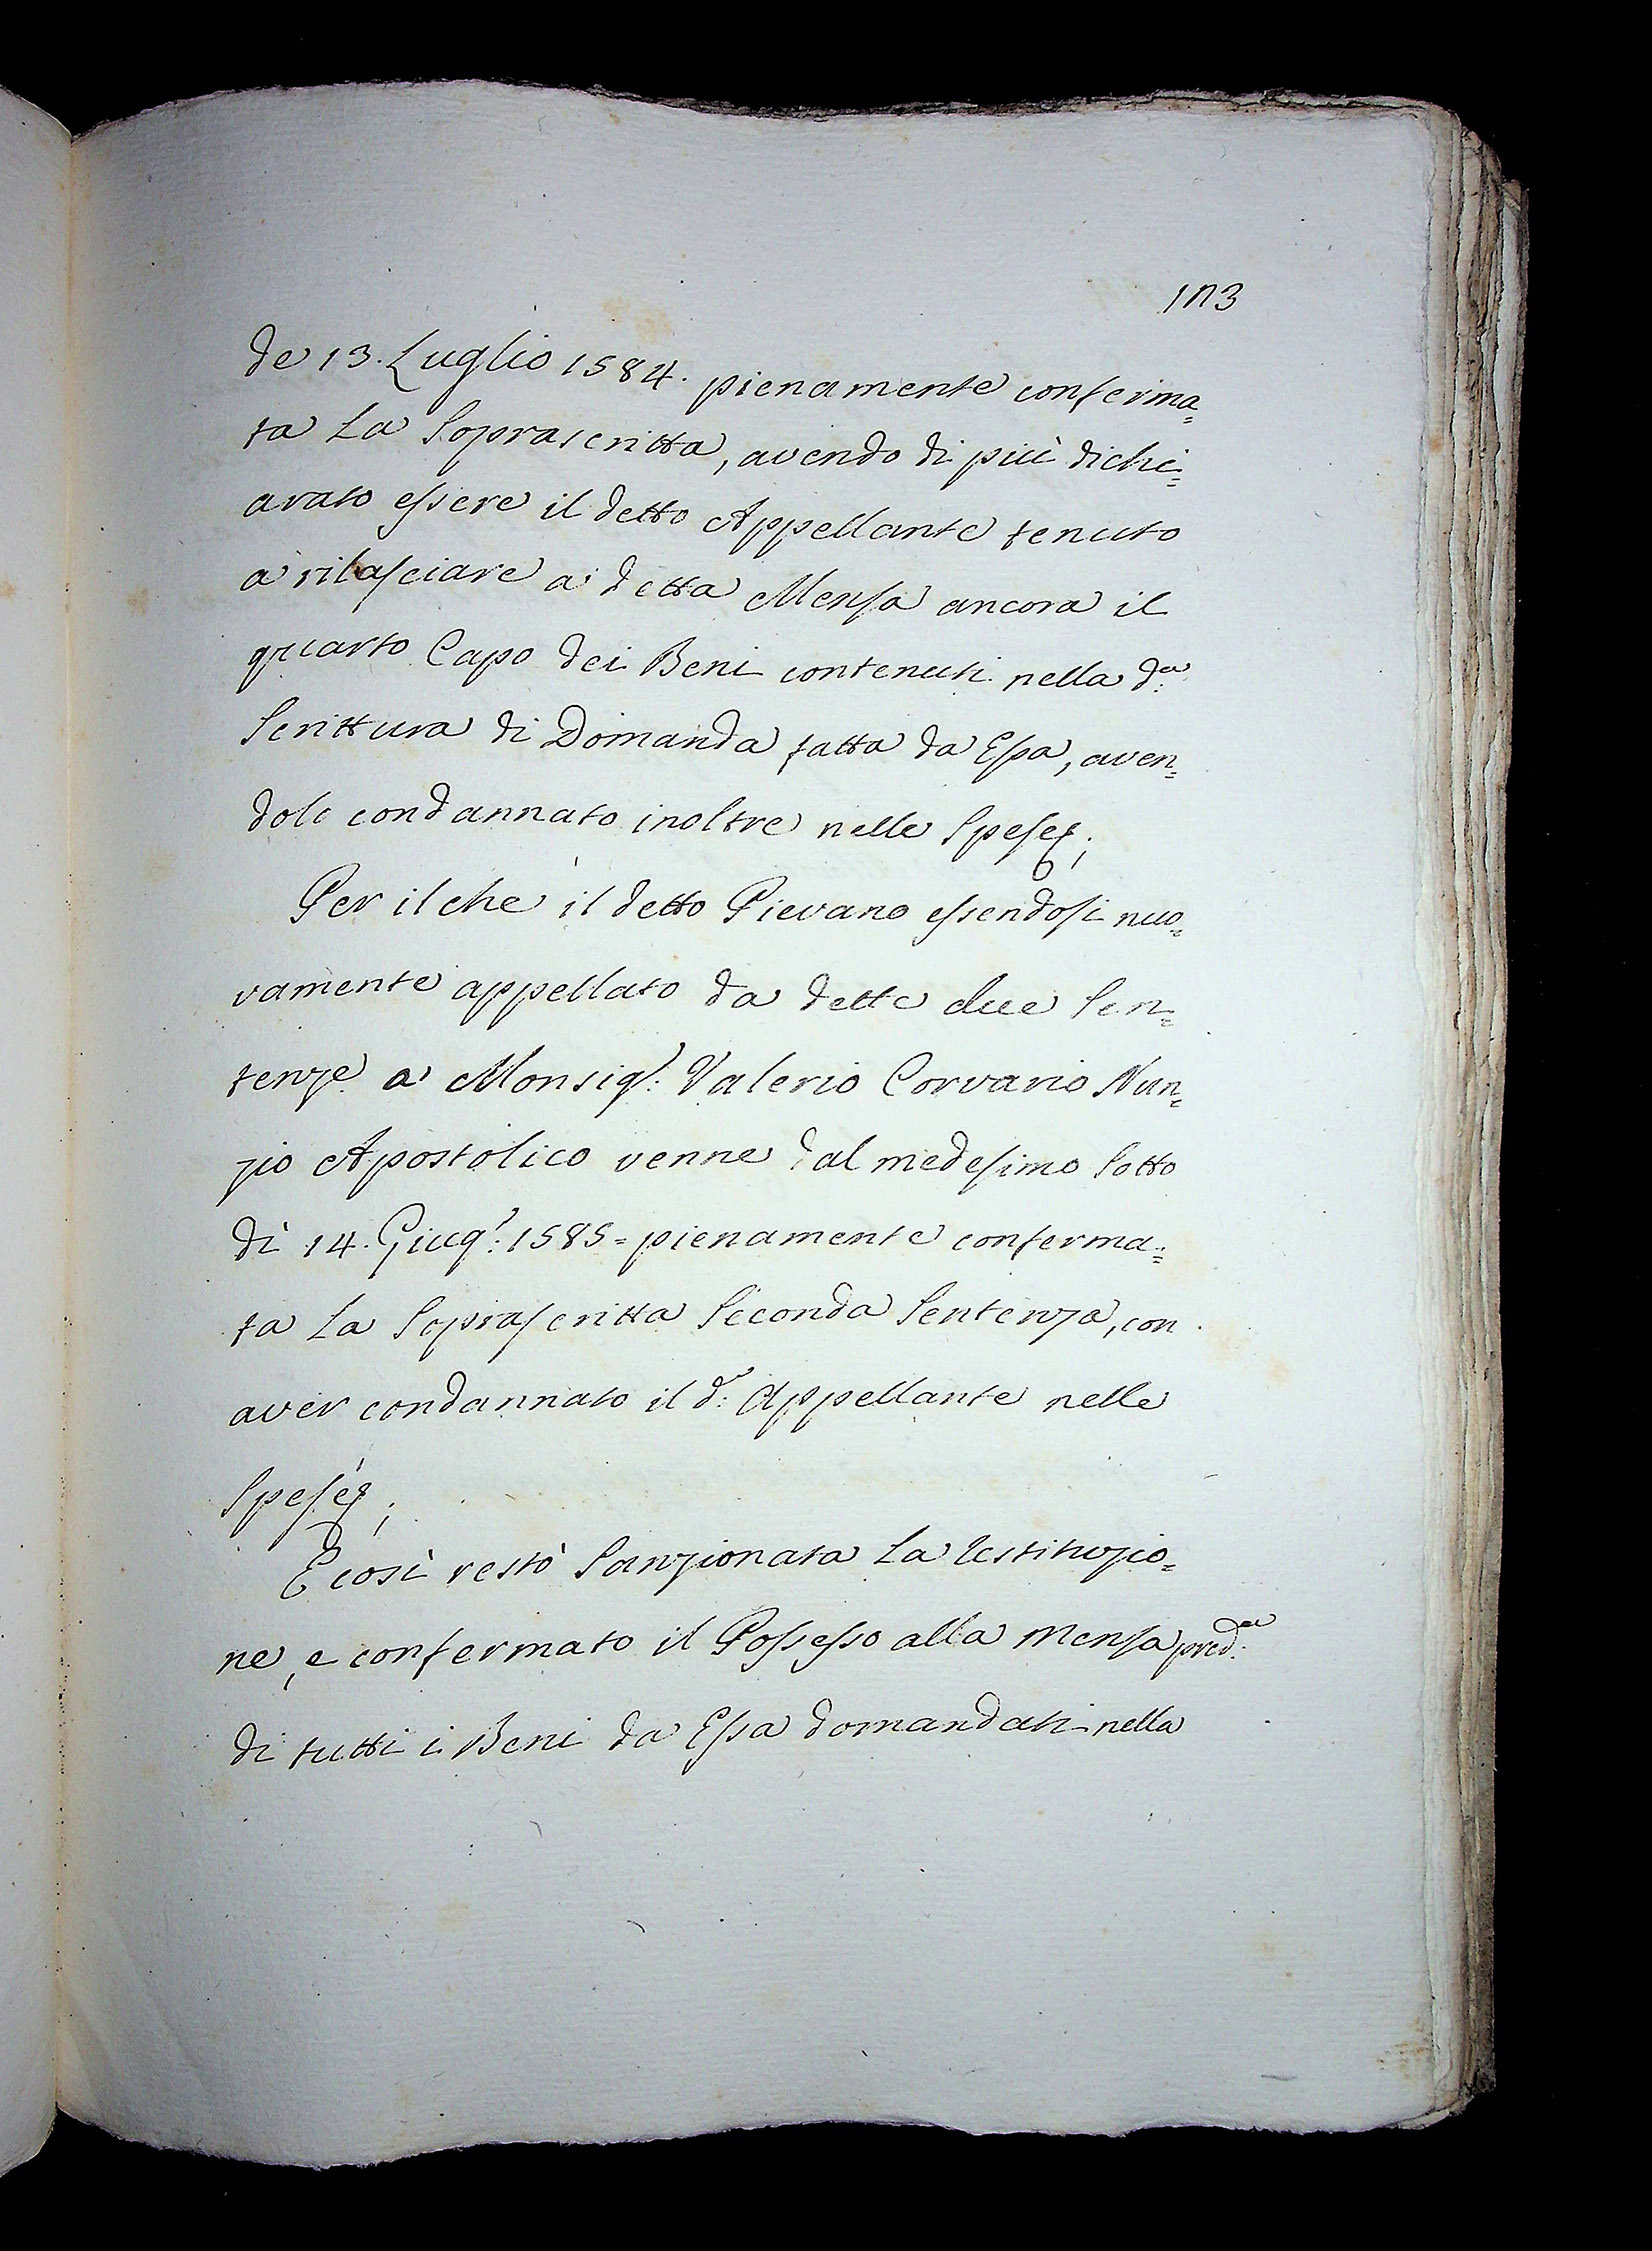 173
de 13. Luglio 1584. pienamente conferma=
ta La Soprascritta, avendo di più dichi=
arato essere il detto Appellante tenuto
a rilasciare a detta Mensa ancora il
quarto Capo dei Beni contenuti nella d.ª
Scrittura di Domanda fatta da Essa, aven=
dolo condannato inoltre nelle Spese;
Per il che il detto Pievano essendosi nuo=
vamente appellato da dette due Sen=
tenze a Monsig.: Valerio Corvario Nun=
zio Apostolico venne dal medesimo Sotto
dì 14. Giug.: 1585= pienamente conferma=
ta La Soprascritta Seconda Sentenza, con
aver condannato il d.º Appellante nelle
Spese;
E così restò Sanzionata La restituzio=
ne, e confermato il Possesso alla Mensa pred.ª
di tutti i Beni da Essa domandati nella